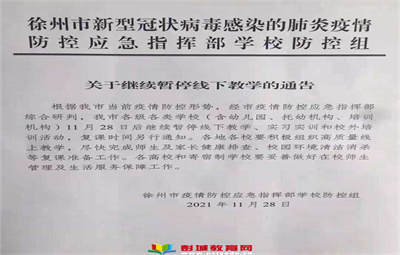 徐州市新型冠状病毒感染的肺炎疫情
防控应急指挥部学校防控组
关于继续暂停线下教学的通告
根据我市当前疫情防控形势，经市疫情防控应急指挥部
综合研判，我市各级各类学校（含幼儿园、托幼机构、培训
机构）11月28日后继续暂停线下教学、实习实训和校外培
训活动，复课时间另行通知。各地各校要积极组织高质量线
上教学，尽快完成师生及家长健康排查、校园环境清洁消杀
等复课准备工作。各高校和寄宿制学校要妥善做好在校师生
管理及生活服务保障工作。
徐州市疫情防控应急指挥部学校防控组
2021年11月28日
彭城教育网